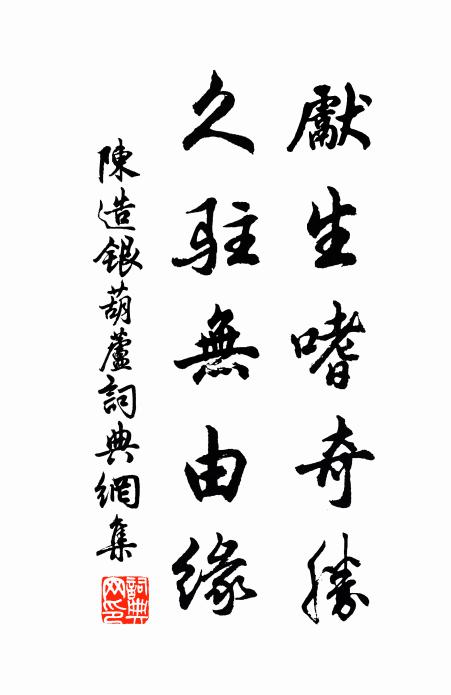 獻生嗜奇勝
久駐無由緣
陳造銀葫蘆詞典網集
詞典网印